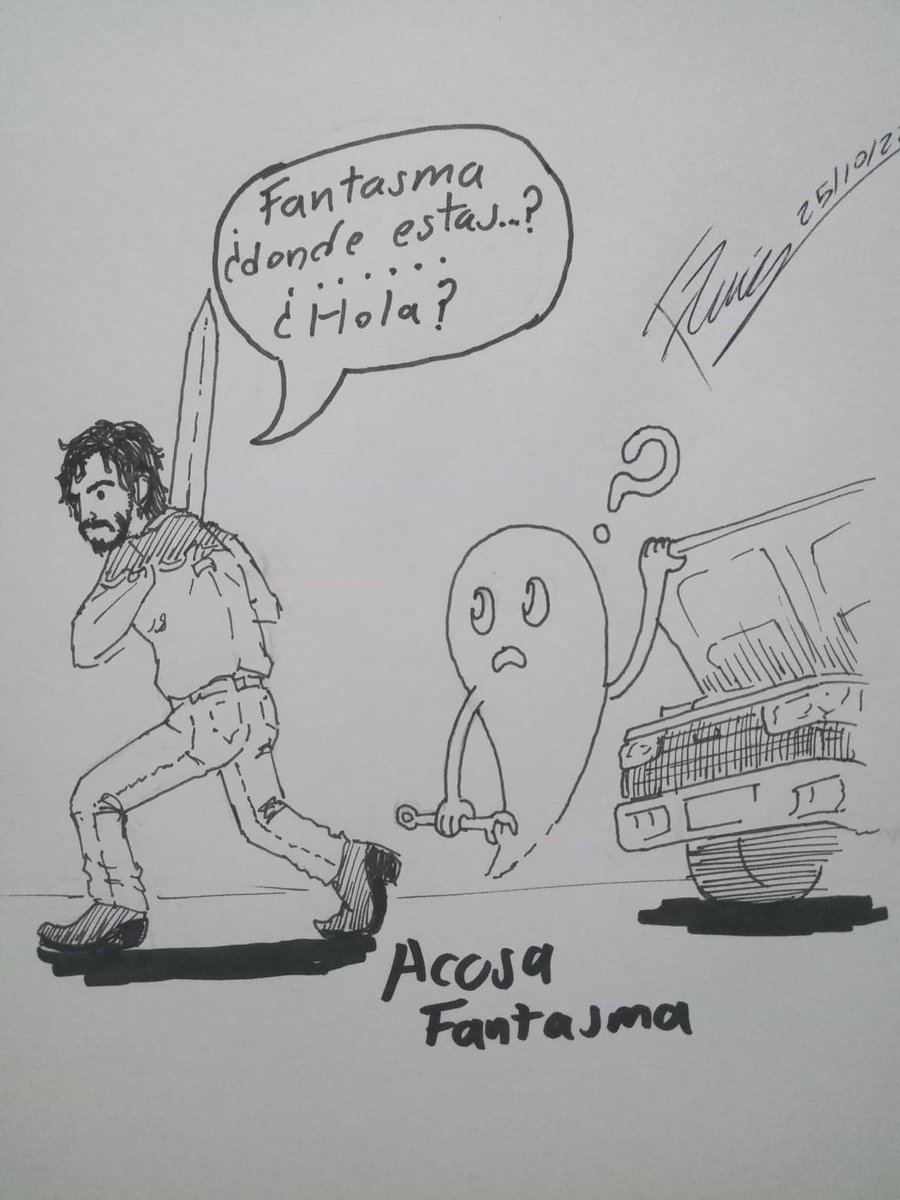 Fantasma
¿donde estas...?
.......
¿Hola?
25/10/2
Acosa
Fantasma